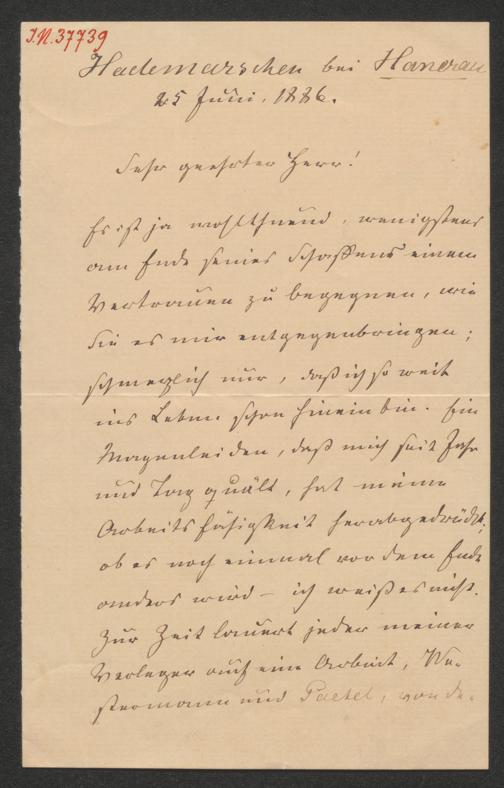 I.N. 37739
Hademarschen bei Hanerau
25 Juni, 1886.
Sehr geehrter Herr!
Es ist ja wohlthuend, wenigstens
am Ende seines Schaffens einem
Vertrauen zu begegnen, wie
Sie es mir entgegenbringen;
schmerzlich nur, daß ich so weit
ins Leben schon hinein bin. Ein
Magenleiden, daß mich seit Jahr
und Tag quält, hat meine
Arbeitsfähigkeit herabgedrückt;
ob es noch einmal vor dem Ende
anders wird – ich weiß es nicht.
Zur Zeit lauert jeder meiner
Verleger auf eine Arbeit, We-
stermann und Paetel, von de-